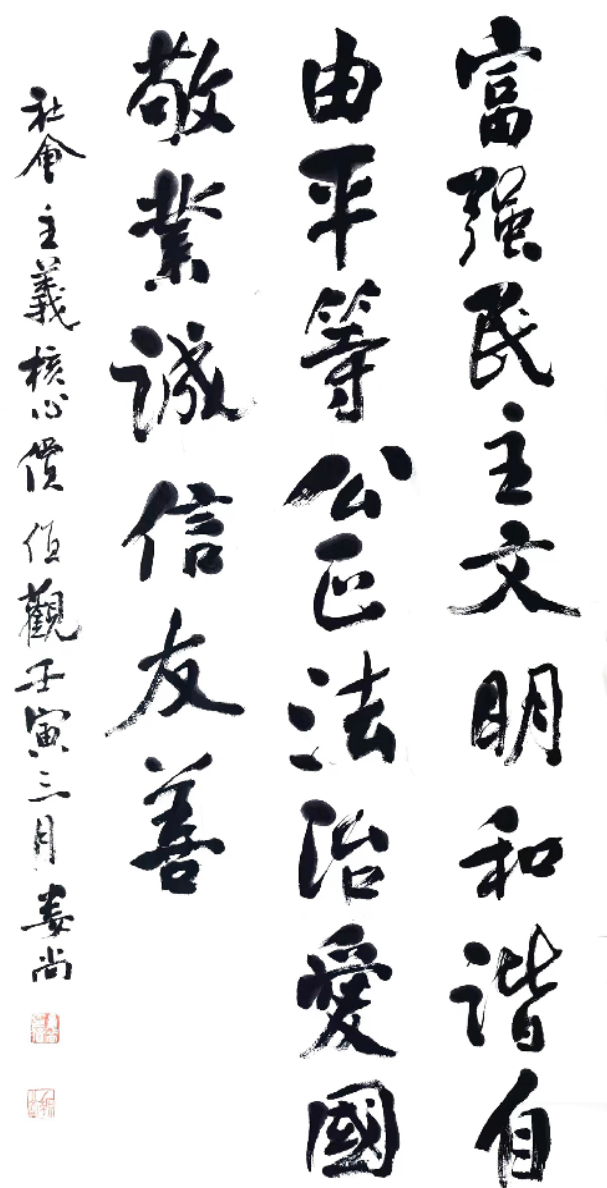 富强民主文明和谐自
由平等公正法治愛國
敬業誠信友善
社會主義核心價值觀壬寅三月婁尚